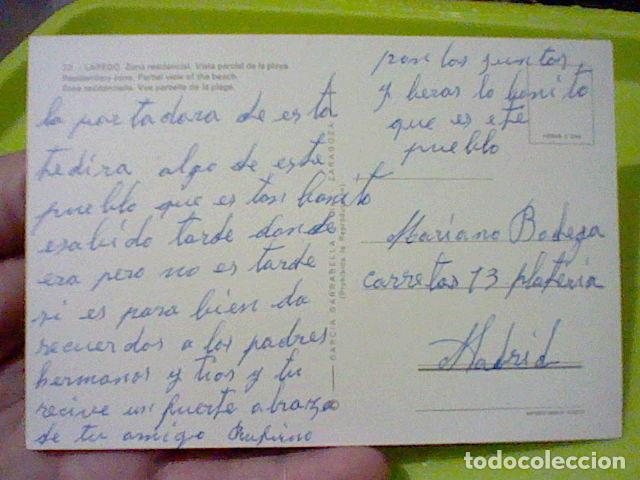 22 - LAREDO. Zona residencial. Vista parcial de la playa
Residentiary zone. Partial view of the beach.
Zone residentielle. Vue partielle de la plage.
la portadora de esta
tedira algo de este
pueblo que es tan bonito
esabido tarde donde
era pero no es tarde
si es para bien da
recuerdos a los padres
hermanos y tios y tu
recive un fuerte abrazo
de tu amigo Rufino
GARCIA GARRABELLA ZARAGOZA
(Prohibida la Reproducción)
pon los puntos,
y beras lo bonito
que es ete
pueblo
Mariano Bodega
carretas 13 plateria
Madrid
todocoleccion